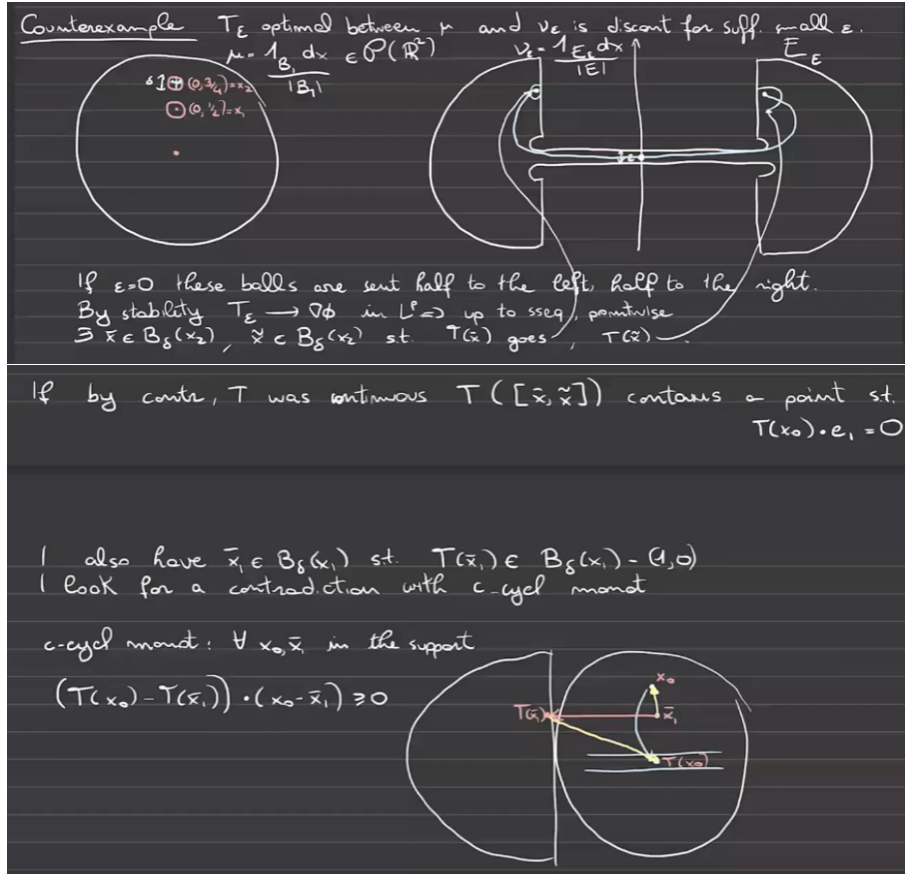 Counterexample T_ε optimal between μ and ν_ε is discont for suff. small ε.
μ = 1_{B_1} dx / |B_1| ∈ P(ℝ²) ν_ε = 1_{E_ε} dx / |E| E_ε
(0, 3/4) = x_2
(0, 1/2) = x_1
ε
If ε=0 these balls are sent half to the left, half to the right.
By stability T_ε → ∇φ in L^p => up to sseq, pointwise
∃ x̄ ∈ B_δ(x_2), x̃ ∈ B_δ(x_2) s.t. T(x̄) goes , T(x̃)
If by contr, T was continuous T([x̄, x̃]) contains a point s.t.
T(x_0)·e_1 = 0
I also have x̄_1 ∈ B_δ(x_1) s.t. T(x̄_1) ∈ B_δ(x_1) - (1,0)
I look for a contradiction with c-cycl monot
c-cycl monot: ∀ x_0, x̄_1 in the support
(T(x_0) - T(x̄_1))·(x_0 - x̄_1) ≥ 0
x_0
T(x̄) x̄_1
T(x_0)